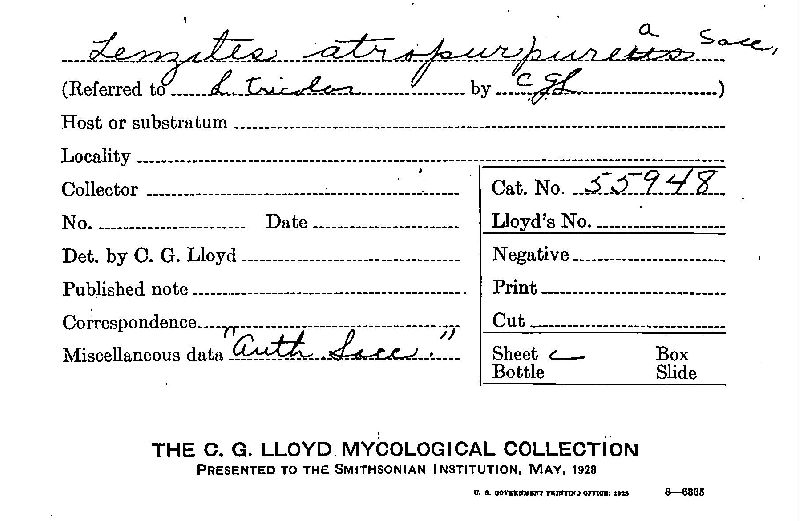 Lenzites atropurpureus a Sacc.
(Referred to L. tricolor by CGL)
Host or substratum
Locality
Collector
Cat. No. 55948
No. Date
Lloyd's No.
Det. by C. G. Lloyd
Negative
Published note
Print
Correspondence
Cut
Miscellaneous data "Auth Sacc."
Sheet Box
Bottle Slide
THE C. G. LLOYD MYCOLOGICAL COLLECTION
PRESENTED TO THE SMITHSONIAN INSTITUTION, MAY, 1928
U. S. GOVERNMENT PRINTING OFFICE: 1928 8—6385